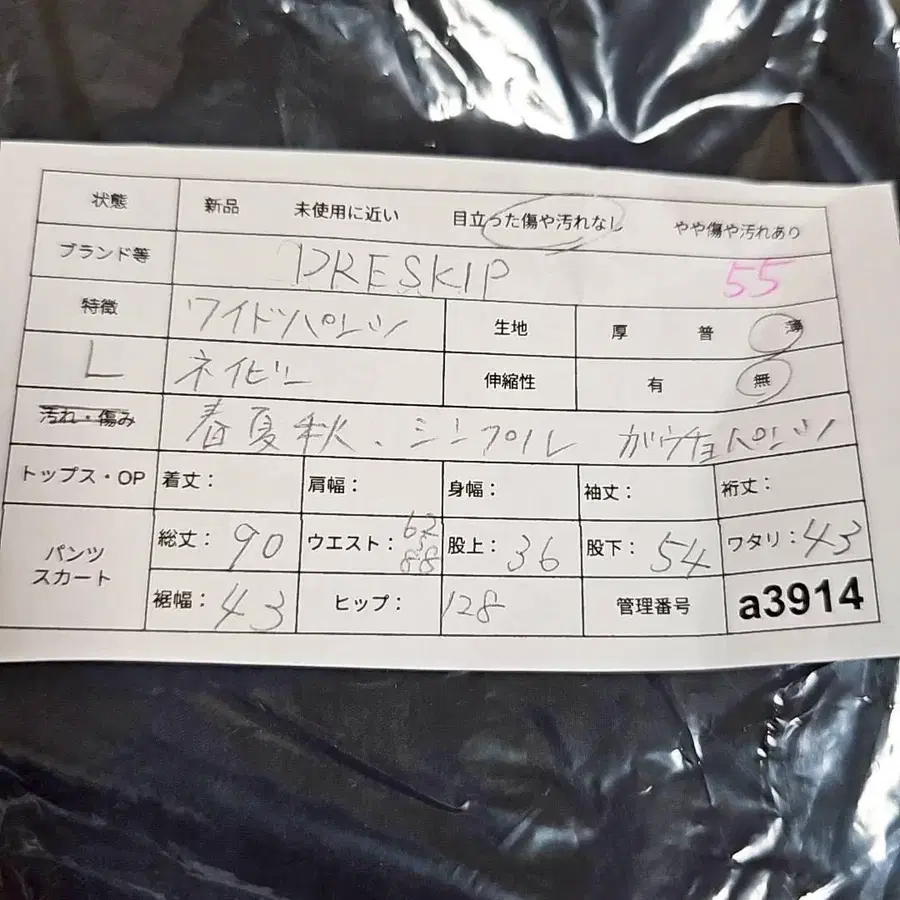 状態 新品 未使用に近い 目立った傷や汚れなし やや傷や汚れあり
ブランド等 DRESKIP 55
特徴 ワイドパンツ 生地 厚 普 薄
L ネイビー 伸縮性 有 無
汚れ・傷み 春夏秋、シンプル ガウチョパンツ
トップス・OP 着丈: 肩幅: 身幅: 袖丈: 裄丈:
パンツ スカート 総丈: 90 ウエスト: 62 88 股上: 36 股下: 54 ワタリ: 43
裾幅: 43 ヒップ: 128 管理番号 a3914